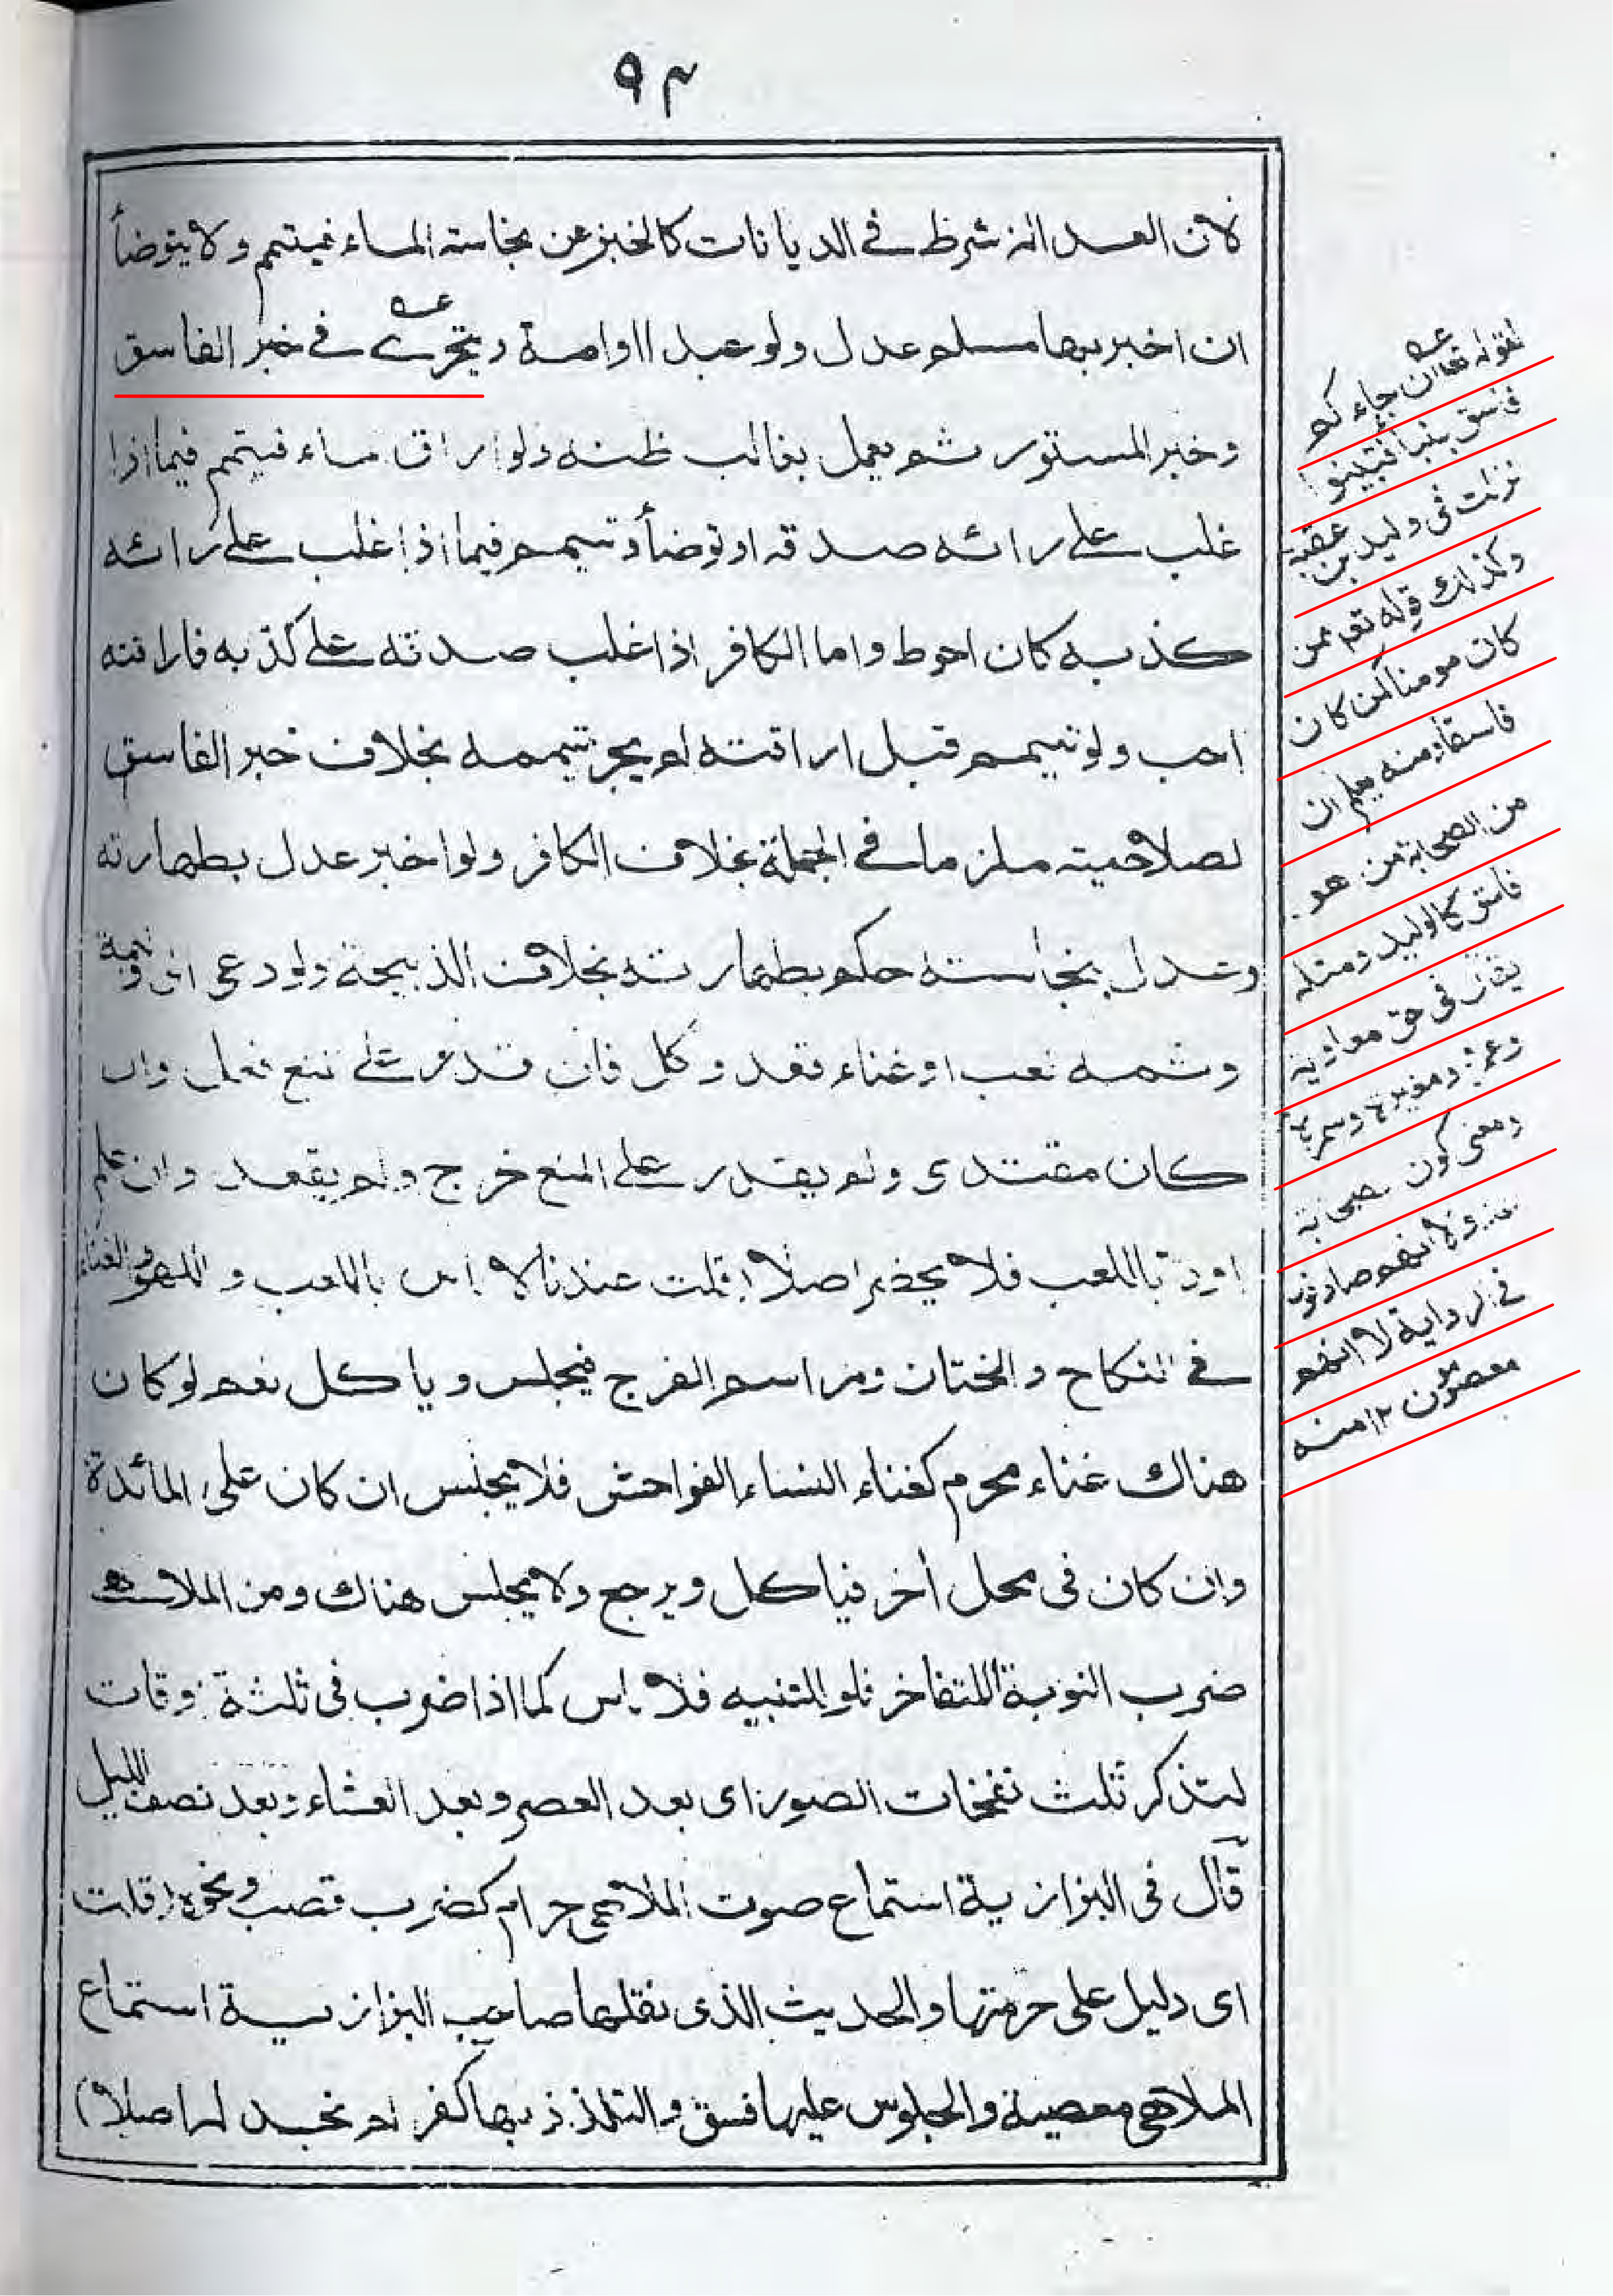 ٩٣
لان العدالة شرط في الديانات كالخبر عن نجاسة الماء فيتمم ولا يتوضأ
ان اخبر بها مسلم عدل ولو عبدا او امة ويتحرى في خبر الفاسق
وخبر المستور ثم يعمل بغالب ظنه ولو اراق ماء فيتمم فيما اذا
غلب على رائه صدقه او توضأ وتيمم فيما اذا غلب على رائه
كذبه كان احوط واما الكافر اذا غلب صدقه على كذبه فاراقته
احب ولو تيمم قبل اراقته لم يجز تيممه بخلاف خبر الفاسق
لصلاحيته ملزما في الجملة بخلاف الكافر ولو اخبر عدل بطهارته
وعدل بنجاسته حكم بطهارته بخلاف الذبيحة ولو دعى الى وليمة
وثمه لعب او غناء قعد وكل فان قدر على المنع فعل وان
كان مقتدى ولم يقدر على المنع خرج ولم يقعد وان علم
اولا باللعب فلا يحضر اصلا قلت عندنا لا باس باللعب و اللهو والغناء
في النكاح والختان ومراسم الفرح فيجلس وياكل نعم لو كان
هناك غناء محرم كغناء النساء الفواحش فلا يجلس ان كان على المائدة
وان كان فى محل أخر فياكل ويرجع ولا يجلس هناك ومن الملاهى
ضرب النوبة للتفاخر فلو للتنبيه فلا باس كما اذا ضرب فى ثلثة اوقات
لتذكر ثلث نفخات الصور اى بعد العصر وبعد العشاء وبعد نصف الليل
قال فى البزازية استماع صوت الملاهى حرام كضرب قصب ونحوه (قلت
اى دليل على حرمتها والحديث الذى نقلها صاحب البزازية استماع
الملاهى معصية والجلوس عليها فسق والتلذذ بها كفر لم نجد لها اصلا)
لقوله تعا ان جاءكم
فاسق بنبأ فتبينوا
نزلت فى وليد بن عقبة
وكذلك قوله تعم افمن
كان مومنا كمن كان
فاسقا ومنه يعلم ان
من الصحابة من هو
فاسق كالوليد ومثله
يقال فى حق معاوية
وعمرو ومغيرة وسمرة
ومعنى كون الصحابة
عدولا انهم صادقون
فى الرواية لا انهم
معصومون ١٢ منه